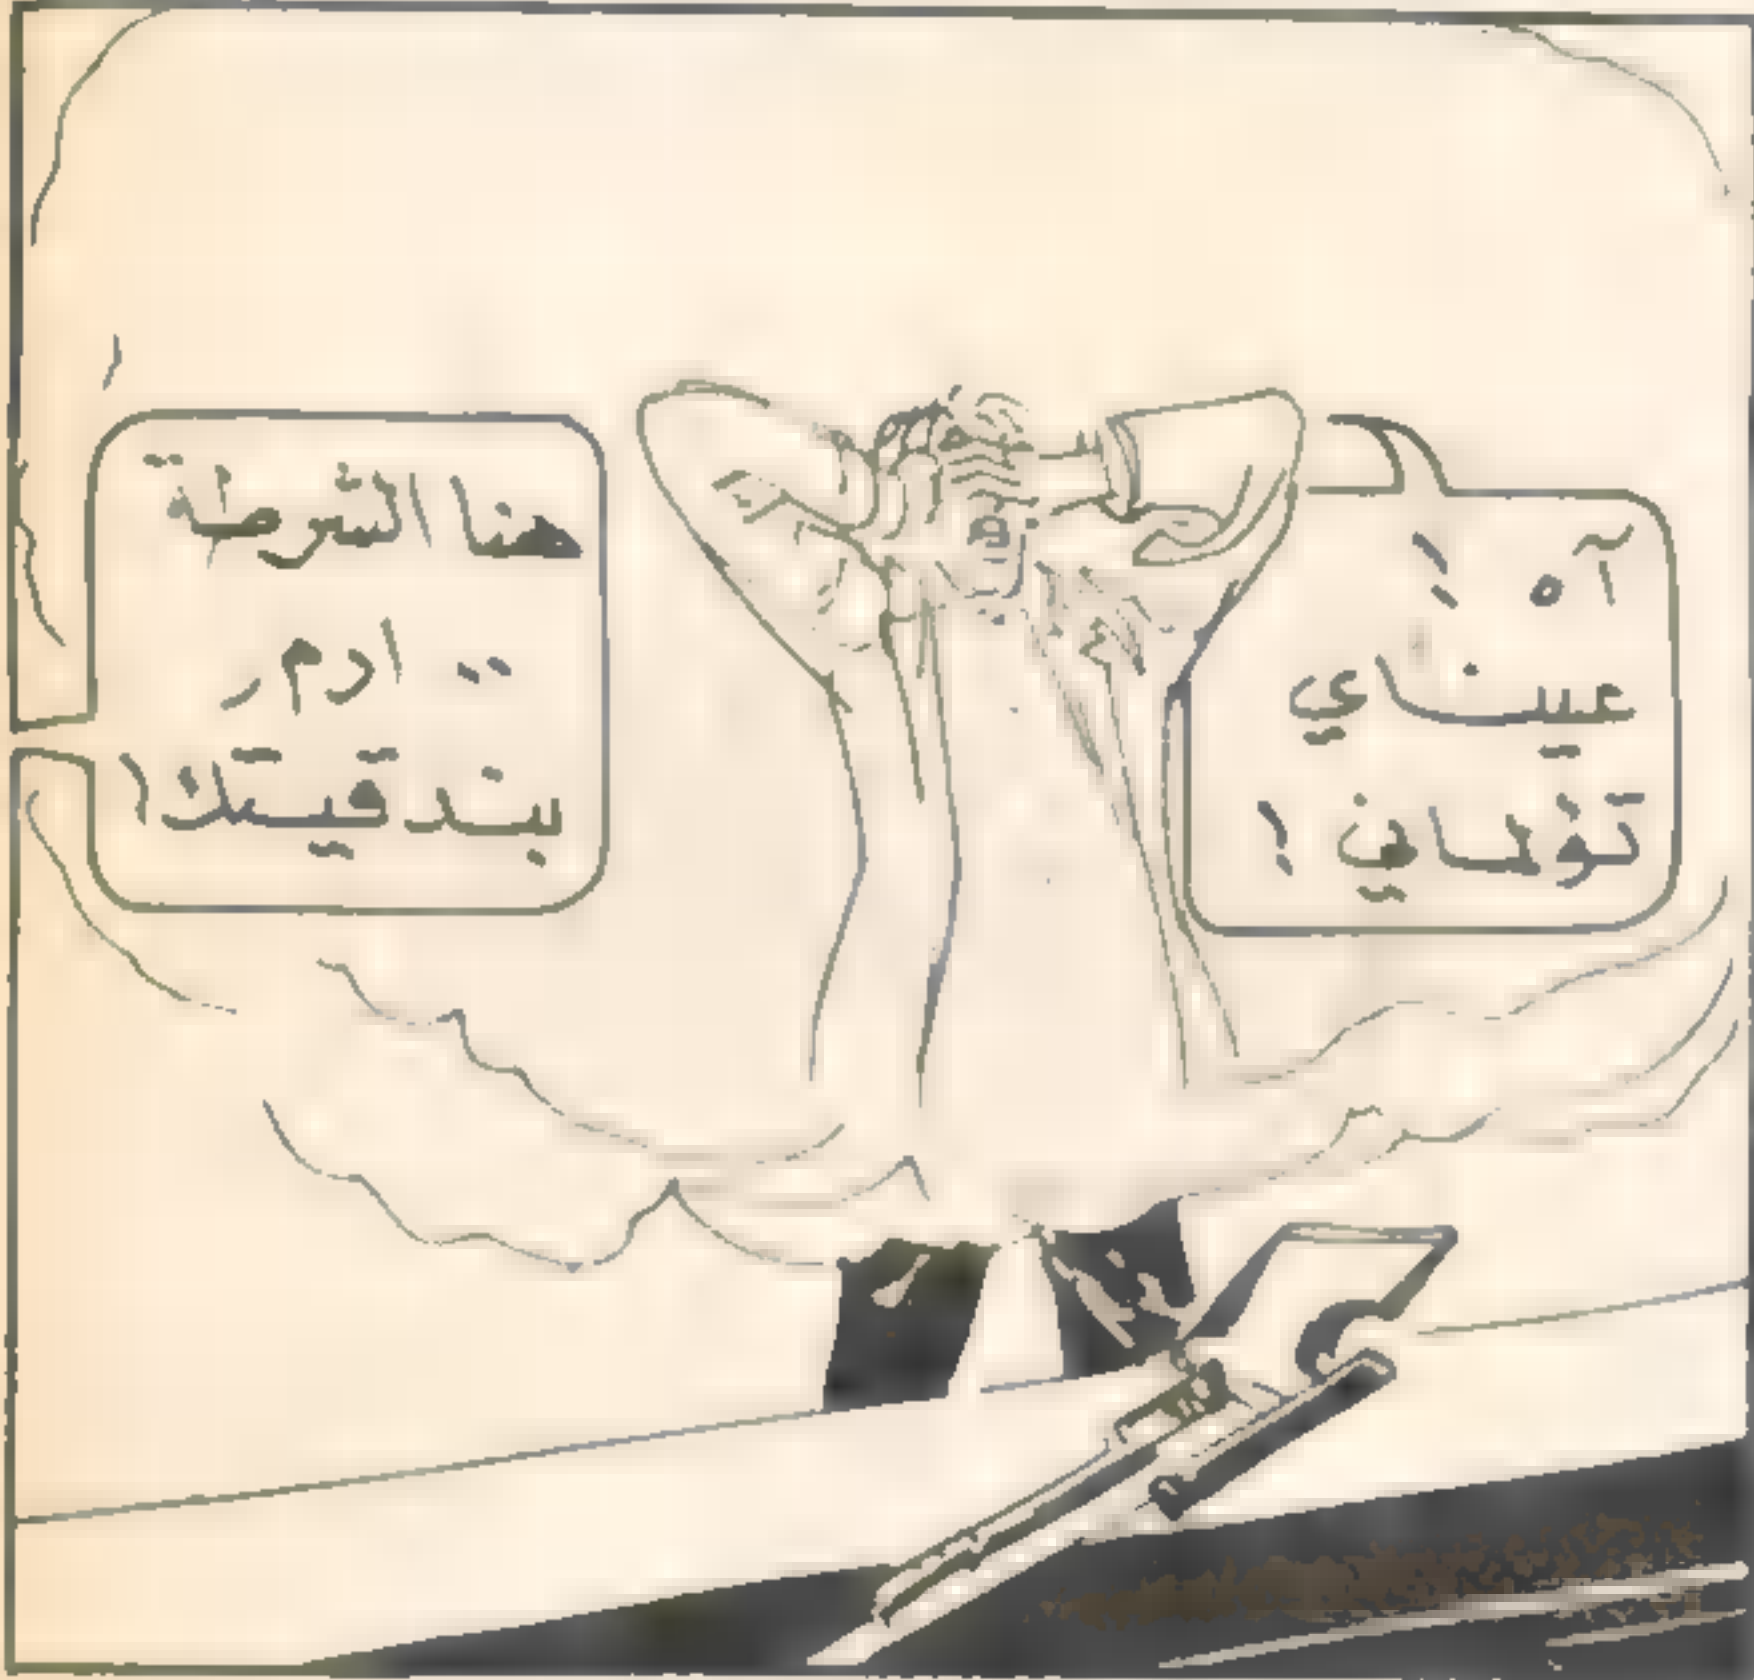 آه !
عيناي
تؤلماني !
هنا الشرطة
.. ارمِ
بندقيتك !